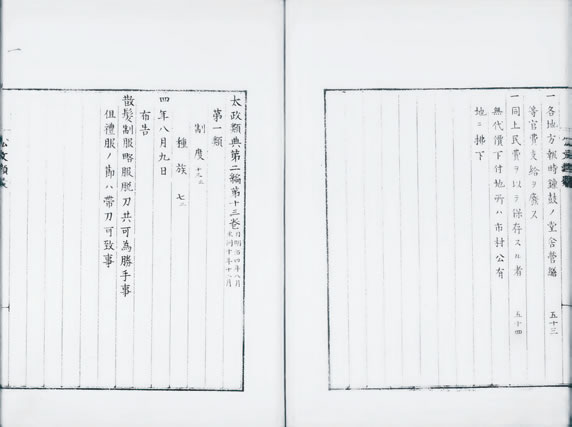 一各地方報時鐘鼓ノ堂舎営繕
等官費支給ヲ廃ス 五十三
一同上民費ヲ以テ保存スル者
無代價下付地所ハ市村公有
地ニ拂下 五十四
太政類典第二編第十三巻 自明治四年八月 至同十年十二月
第一類
制度 十之二
種族 七二
四年八月九日
布告
散髪制服略服脱刀共可為勝手事
但禮服ノ節ハ帯刀可致事